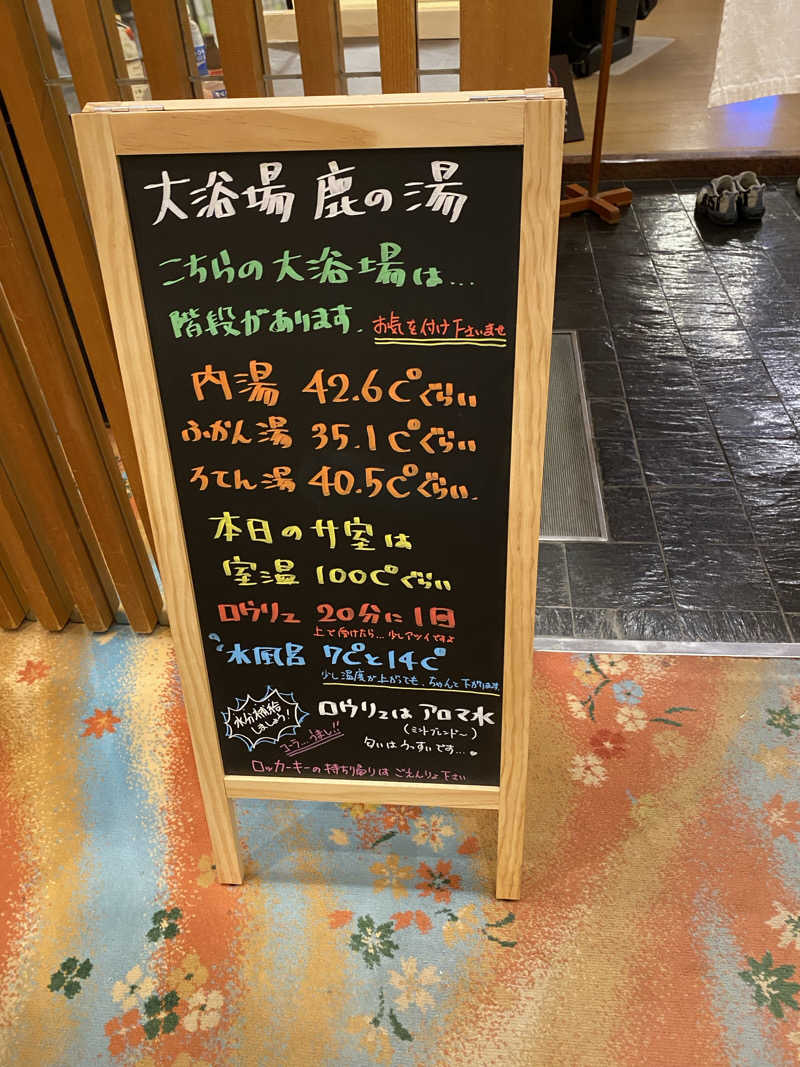 大浴場 鹿の湯
こちらの大浴場は...
階段があります. お気を付け下さいませ
内湯 42.6℃ぐらい
ふかん湯 35.1℃ぐらい
ろてん湯 40.5℃ぐらい.
本日のサ室は
室温 100℃ぐらい
ロウリュ 20分に1回
上で受けたら... 少しアツイですよ
水風呂 7℃と14℃
少し温度が上がっても、ちゃんと下がります.
水分補給
しましょう!
コーラ...うまし!!
ロウリュは アロマ水
(ミントブレンドー)
匂いはうっすいです...
ロッカーキーの持ち帰りは ごえんりょ下さい